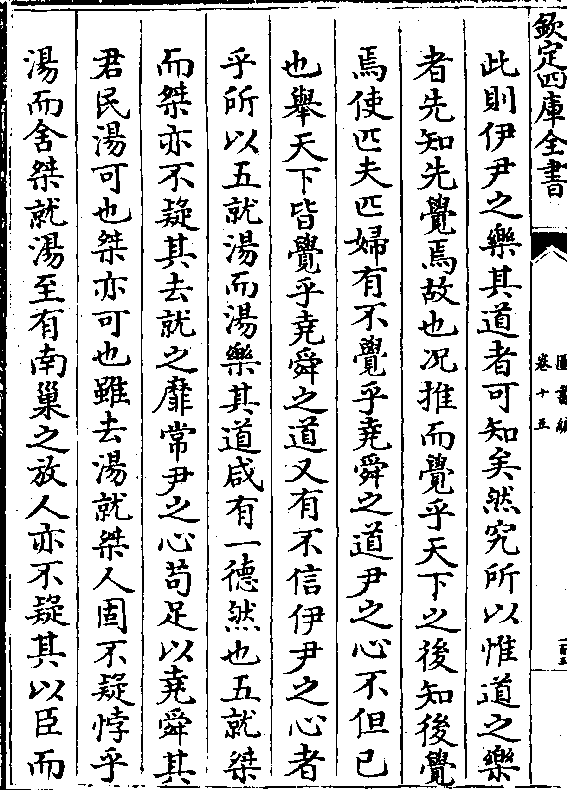 欽定四庫全書
圖書編
卷十五
此則伊尹之樂其道者可知矣然究所以惟道之樂
者先知先覺焉故也况推而覺乎天下之後知後覺
焉使匹夫匹婦有不覺乎堯舜之道尹之心不但已
也舉天下皆覺乎堯舜之道又有不信伊尹之心者
乎所以五就湯而湯樂其道咸有一德然也五就桀
而桀亦不疑其去就之靡常尹之心苟足以堯舜其
君民湯可也桀亦可也雖去湯就桀人固不疑悖乎
湯而舍桀就湯至有南巢之放人亦不疑其以臣而